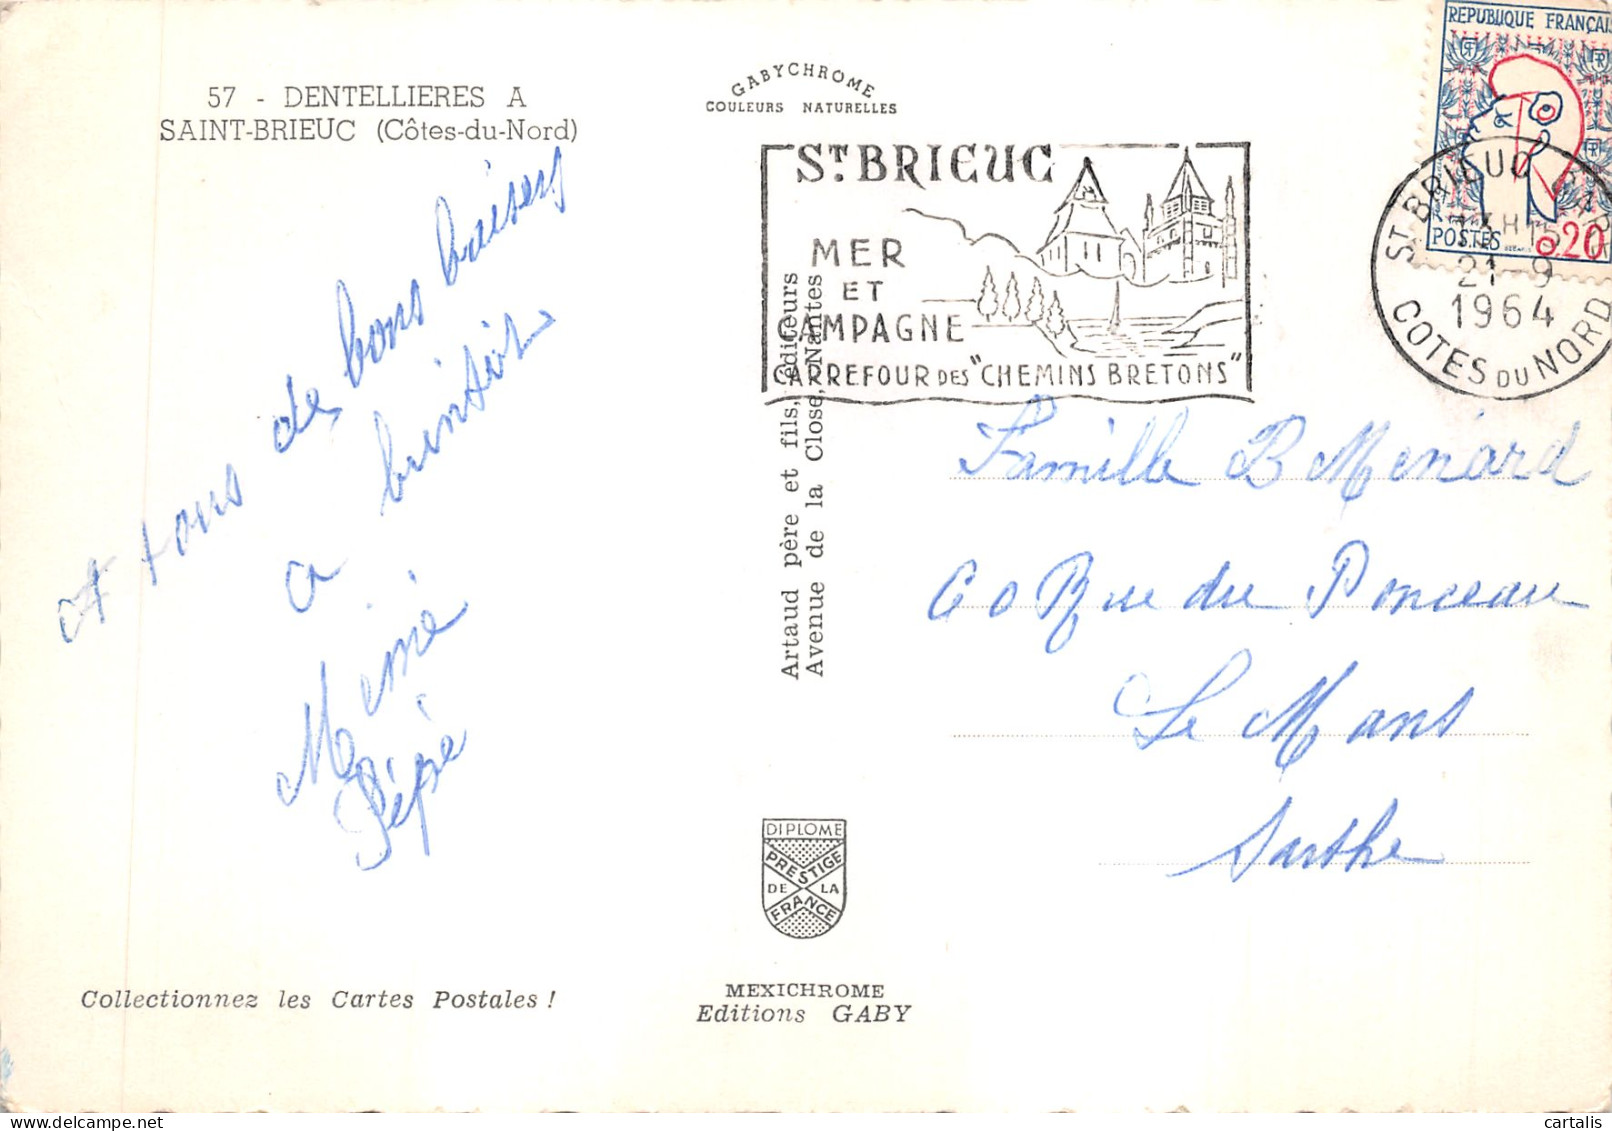 57 - DENTELLIERES A
SAINT-BRIEUC (Côtes-du-Nord)
GABYCHROME
COULEURS NATURELLES
RÉPUBLIQUE FRANÇAIS
POSTES
0,20
ST BRIEUC GARE
21-9
1964
COTES DU NORD
ST. BRIEUC
MER
ET
CAMPAGNE
CARREFOUR DES "CHEMINS BRETONS"
A tous de bons baisers
a bientôt
Mémé
Pépé
Artaud père et fils, éditeurs
Avenue de la Close, Nantes
Famille B Menard
60 Rue du Ponceau
Le Mans
Sarthe
DIPLOME
PRESTIGE
DE LA
FRANCE
Collectionnez les Cartes Postales !
MEXICHROME
Editions GABY
cartalis